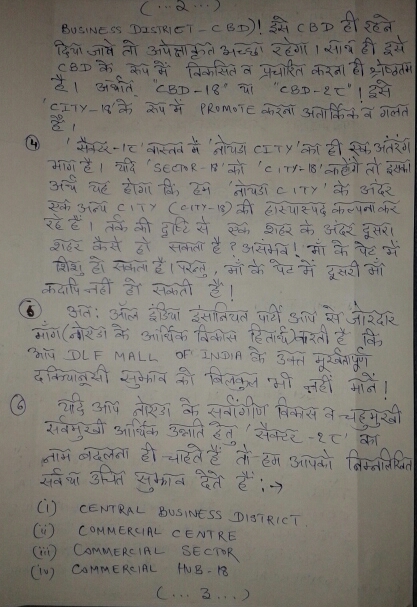 (...2...)
BUSINESS DISTRICT - CBD)! इसे CBD ही रहने
दिया जावे तो अपेक्षाकृत अच्छा रहेगा। साथ ही इसे
CBD के रूप में विकसित व प्रचारित करना ही श्रेष्ठतम
है। अर्थात् "CBD-18" या "CBD-१८"! इसे
'CITY-18' के रूप में PROMOTE करना अतार्किक व गलत
है।
④ 'सैक्टर-१८' वास्तव में 'नोएडा CITY' का ही एक अंतरंग
भाग है। यदि 'SECTOR-18' को 'CITY-18' कहेंगे तो इसका
अर्थ यह होगा कि हम 'नोएडा CITY' के अंदर
एक अन्य CITY (CITY-18) की हास्यास्पद कल्पना कर
रहे हैं। तर्क की दृष्टि से एक शहर के अंदर दूसरा
शहर कैसे हो सकता है? असंभव! माँ के पेट में
शिशु हो सकता है। परन्तु, माँ के पेट में दूसरी माँ
कदापि नहीं हो सकती है।
अत: ऑल इंडिया इंसानियत पार्टी आप से जोरदार
मांग (नोएडा के आर्थिक विकास हितार्थ) करती है कि
आप DLF MALL OF INDIA के उक्त मूर्खतापूर्ण
दकियानूसी सुझाव को बिलकुल भी नहीं मानें!
⑥ यदि आप नोएडा के सर्वांगीण विकास व चहुमुखी
सर्वमुखी आर्थिक उन्नति हेतु 'सैक्टर-१८' का
नाम बदलना ही चाहते हैं तो हम आपको निम्नलिखित
सर्वथा उचित सुझाव देते हैं :→
(i) CENTRAL BUSINESS DISTRICT.
(ii) COMMERCIAL CENTRE
(iii) COMMERCIAL SECTOR
(iv) COMMERCIAL HUB-18
(...3...)